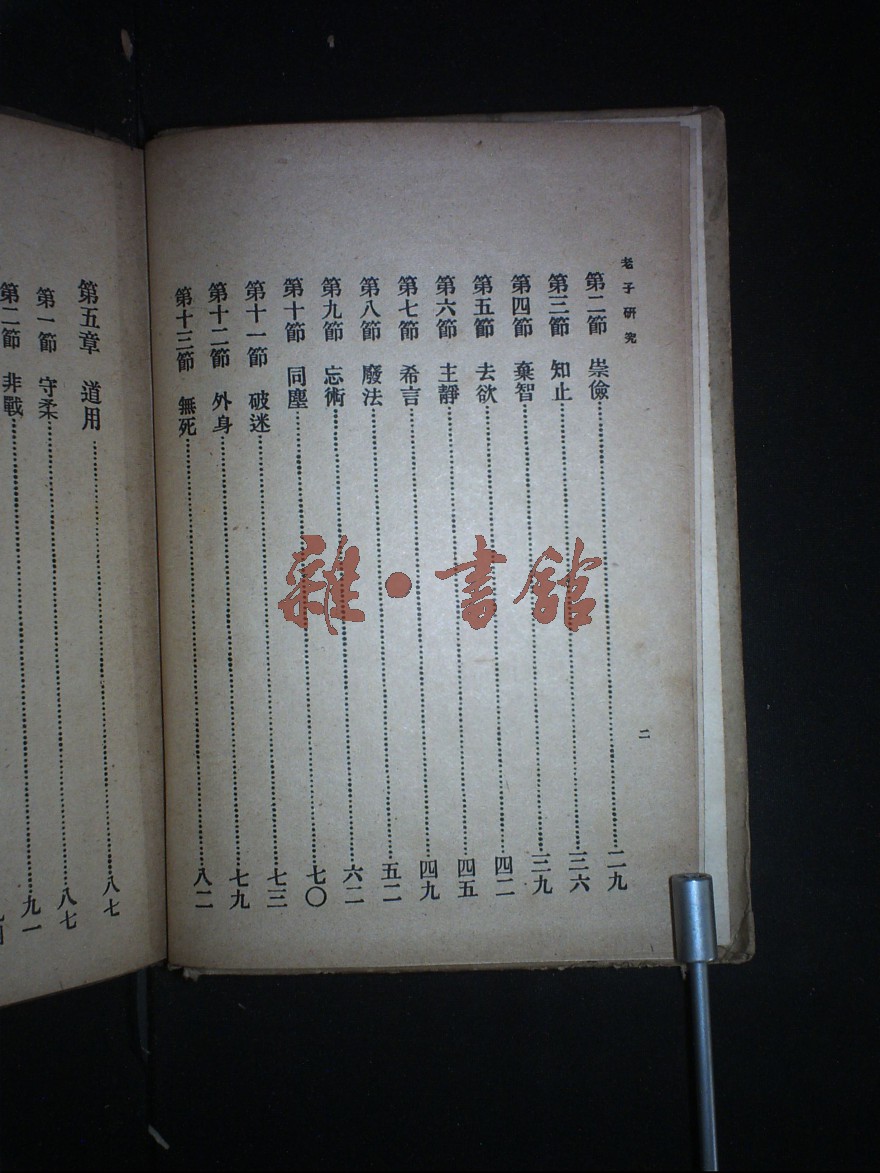 老子研究
二
第二節 崇儉……二九
第三節 知止……三六
第四節 棄智……三九
第五節 去欲……四二
第六節 主靜……四五
第七節 希言……四九
第八節 廢法……五二
第九節 忘術……六二
第十節 同塵……七〇
第十一節 破迷……七三
第十二節 外身……七九
第十三節 無死……八二
第五章 道用……八七
第一節 守柔……八七
第二節 非戰……九一
雜·書館